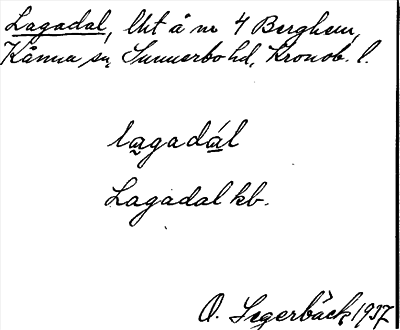 Lagadal, lht å nr 4 Berghem,
Kånna sn, Sunnerbo hd, Kronob. l.
lagadál
Lagadal kb.
O. Segerbäck 1937